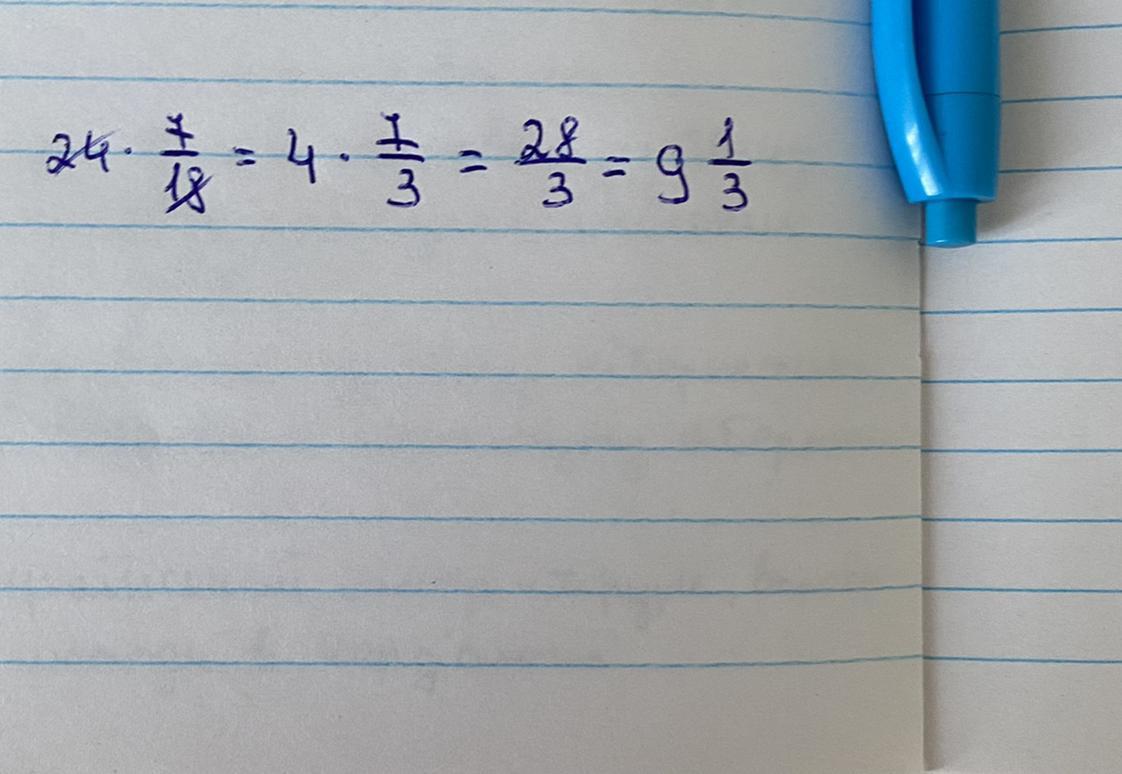 24 · 7/18 = 4 · 7/3 = 28/3 = 9 1/3